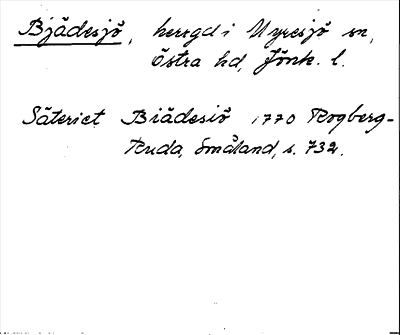 Bjädesjö, herrgd i Myresjö sn,
Östra hd, Jönk. l.
Säteriet Biädesiö 1770 Rogberg-
Ruda, Småland, s. 732.